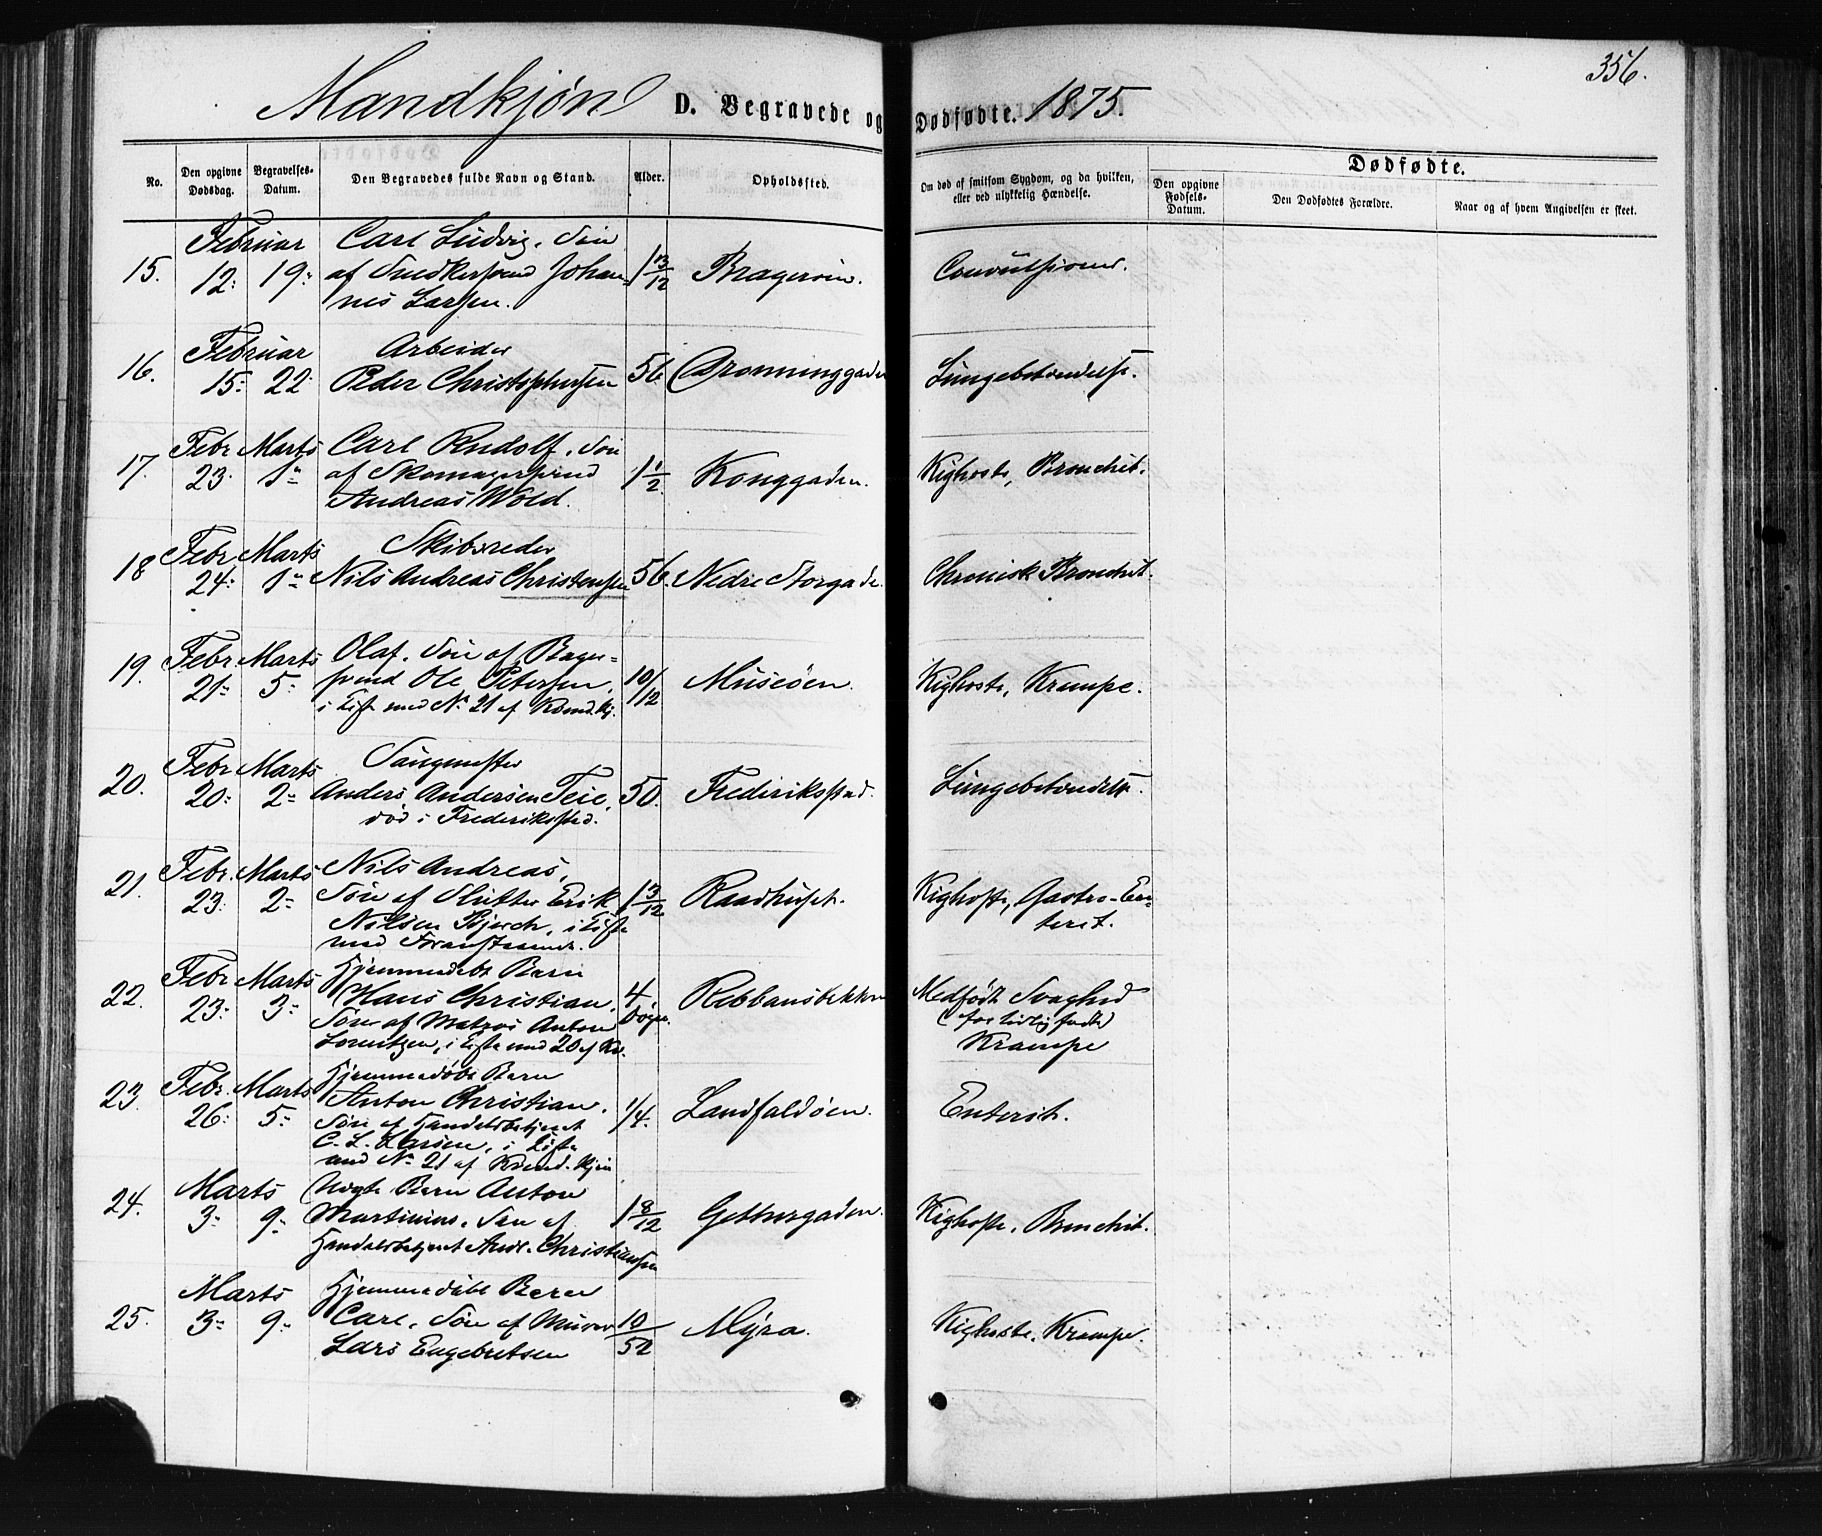 356.
Mandkjøn D. Begravede og Dødfødte. 1875.
No.
Den opgivne Dødsdag.
Begravelses-Datum.
Den Begravedes fulde Navn og Stand.
Alder.
Opholdssted.
Om død af smitsom Sygdom, og da hvilken, eller ved ulykkelig Hændelse.
Dødfødte.
Den opgivne Fødsels-Datum.
Den Dødfødtes Forældre.
Naar og af hvem Angivelsen er skeet.
Februar Carl Ludvig, Søn
15. 12: 19: af Snedkersvend Johan- 1 3/12 Bragerøen. Convulsioner.
nes Larsen.
Februar Arbeider
16. 15: 22: Peder Christophersen 56 Dronninggaden Lungebetændelse.
Febr Marts Carl Rudolf, Søn
17. 23. 1: af Skomagersvend 1 1/2 Konggaden. Kighoste, Bronchit.
Andreas Wold.
Febr Marts Skibsreder
18 24: 1: Nils Andreas Christensen 56. Nedre Storgade. Chronisk Bronchit.
19. Febr Marts Olaf, Søn af Bager-
21: 5: svend Ole Petersen, 10/12 Museøen. Kighoste, Krampe.
i Kiste med No 21 af Kvindkj.
Febr Marts Sangmester
20. 20: 2: Anders Andersen Teie, 50. Frederiksstad. Lungebetændelse.
død i Frederiksstad.
Febr. Marts Nils Andreas,
21. 23: 2: Søn af Slutter Erik 1 3/12 Raadhuset. Kighoste, Gastro-En-
Nilsen Bjerch, i Kiste terit.
med Foranstaaende.
Febr Marts Hjemmedøbt Barn
22. 23: 3: Hans Christian, 4 Døgn. Rebbansbekken Medfødt Svaghed
Søn af Matros Anton (for tidlig født)
Lorentzen, i Kiste med 20 af Kv. Krampe
Febr. Marts Hjemmedøbt Barn
23. 26: 5: Anton Christian, 1/4. Landfaldøen. Enterit.
Søn af Handelsbetjent
C. L. Larsen, i Kiste
med No 21 af Kvind-kjøn
Marts Uægte Barn Anton
24. 3: 9: Martinius, Søn af 1 8/12 Gethesgaden. Kighoste, Bronchit.
Handelsbetjent Andr. Christiansen
Marts Hjemmedøbt Barn
25. 3: 9: Carl, Søn af Murer 10/52 Myra. Kighoste, Krampe.
Lars Engebretsen